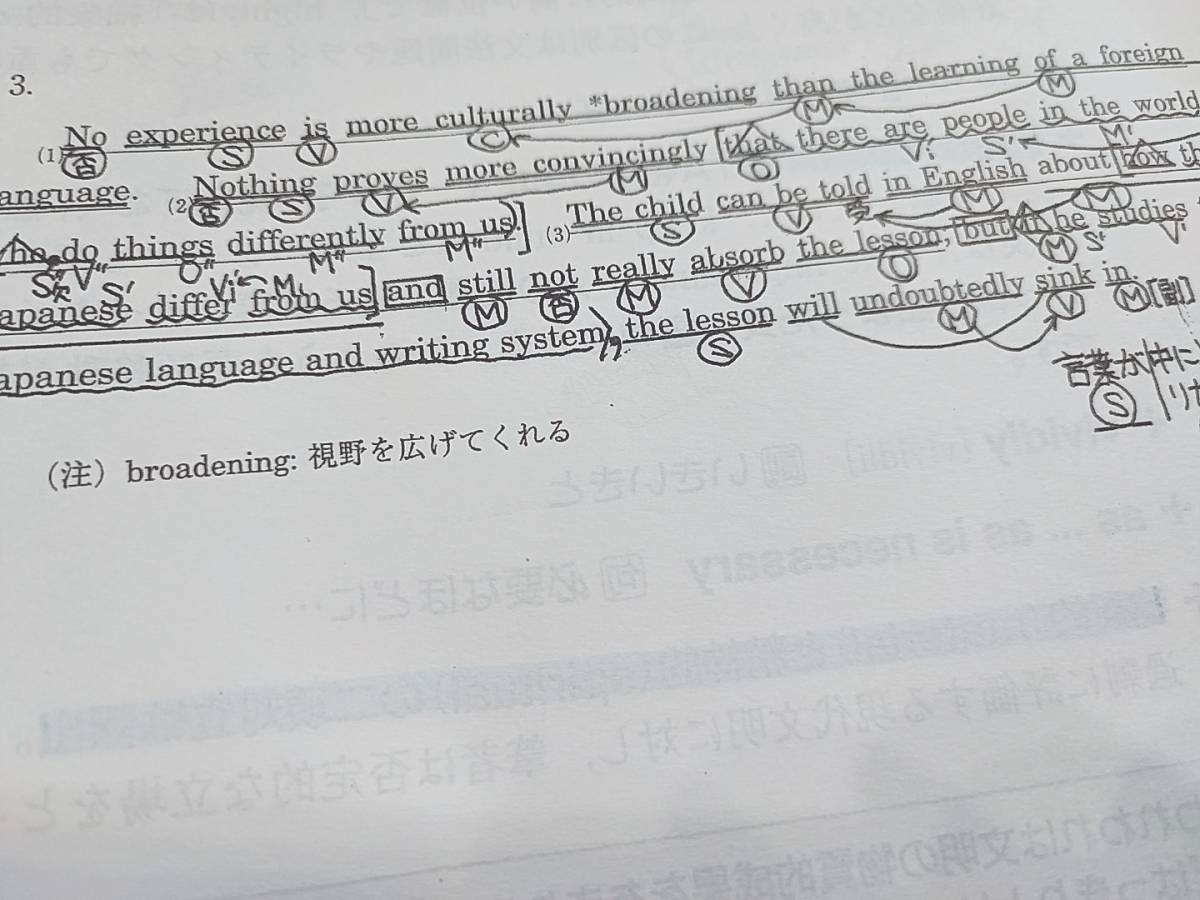 3.
(1) No experience is more culturally *broadening than the learning of a foreign
anguage. (2) Nothing proves more convincingly [that there are people in the world
he do things differently from us.] (3) The child can be told in English about [how th
apanese differ from us] [and] still not really absorb the lesson, [but] if he studies
apanese language and writing system, the lesson will undoubtedly sink in.
否 S V C M M
否 S V M O Vi S' M'
S V 受 M M
S関 V" O" M" M"
S' Vi M' M 否 M V O M S' V'
S M V M[副]
言葉が 中に
S
(注) broadening: 視野を広げてくれる